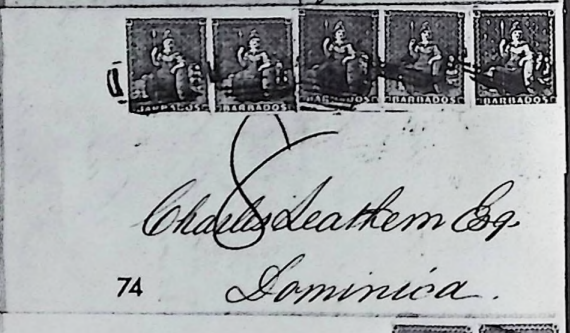 BARBADOS BARBADOS BARBADOS BARBADOS BARBADOS
8
Charles Leathem Esq.
74
Dominica.